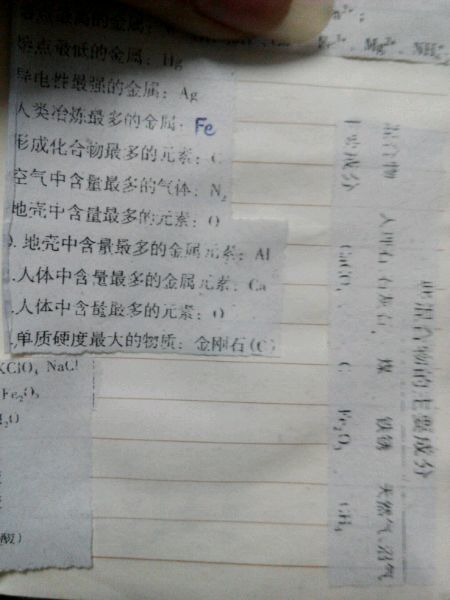 熔点最低的金属：Hg
导电性最强的金属：Ag
人类冶炼最多的金属：Fe
形成化合物最多的元素：C
空气中含量最多的气体：N₂
地壳中含量最多的元素：O
地壳中含量最多的金属元素：Al
.人体中含量最多的金属元素：Ca
.人体中含量最多的元素：O
.单质硬度最大的物质：金刚石(C)
Mg²⁺、NH₄⁺
KClO₃ NaCl
Fe₂O₃
H₂O
酸）
混合物的主要成分
混合物 大理石、石灰石、 煤 铁锈 天然气、沼气
主要成分 CaCO₃ C Fe₂O₃ CH₄